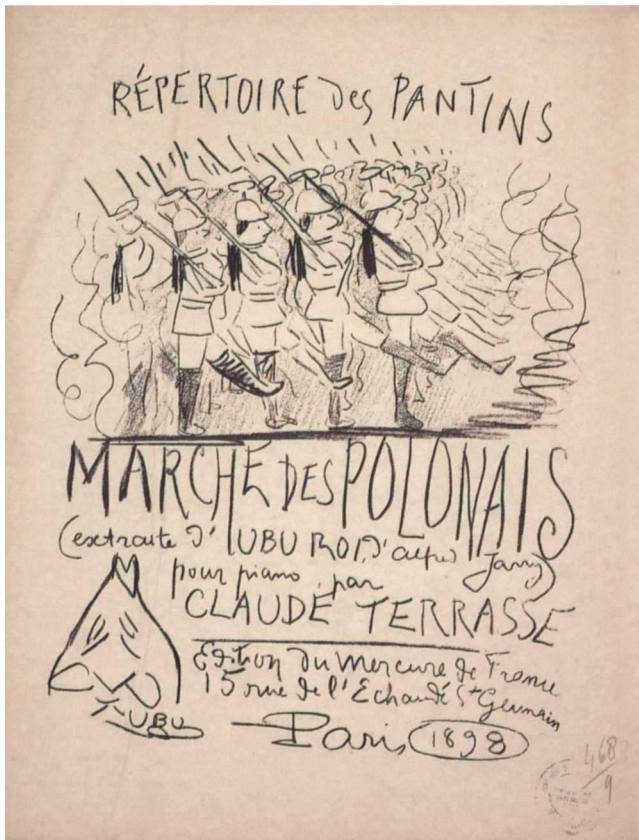 RÉPERTOIRE des PANTINS
MARCHE DES POLONAIS
(extraite d'UBU ROI d'alfred Jarry)
pour piano par
CLAUDE TERRASSE
Édition du Mercure de France
15 rue de l'Echaudé St Germain
Paris 1898
UBU
468
9